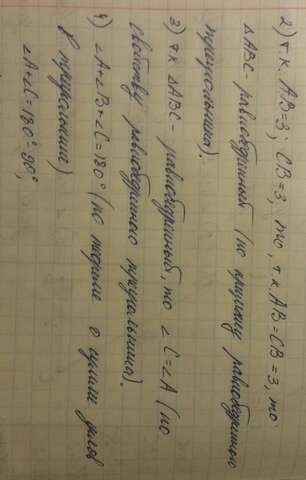 2) т.к. AB=3; CB=3, то, т.к AB=CB=3, то
ΔABC- равнобедренный (по признаку равнобедренного
треугольника).
3) т.к ΔABC- равнобедренный, то ∠C=∠A (по
свойству равнобедренного треугольника).
4) ∠A+∠B+∠C=180° (по теореме о сумме углов
в треугольнике)
∠A+∠C=180°-90°,